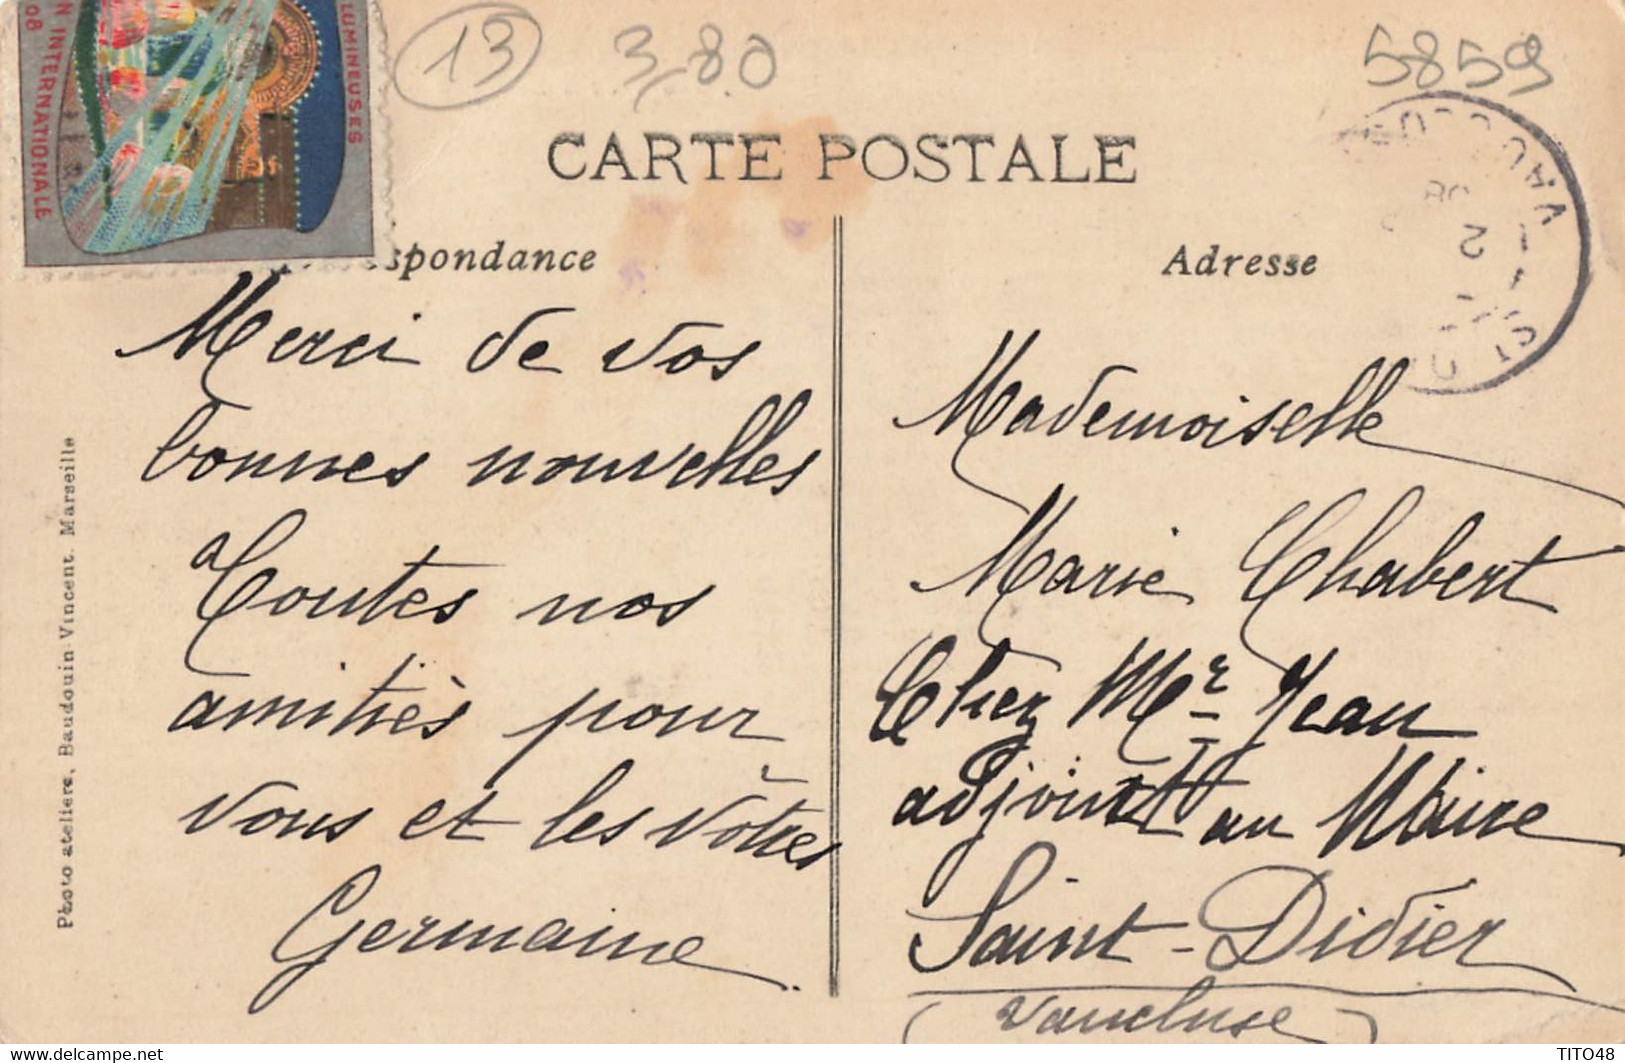 LUMINEUSES
INTERNATIONALE
08
13
3,80
5859
CARTE POSTALE
spondance
Adresse
Merci de vos
bonnes nouvelles
Toutes nos
amitiès pour
vous et les vôtres
Germaine
Mademoiselle
Marie Chabert
Chez Mr Jean
adjoint au Maire
Saint-Didier
(Vaucluse)
Photo ateliers, Baudouin Vincent. Marseille
Delcampe.net
TITO48